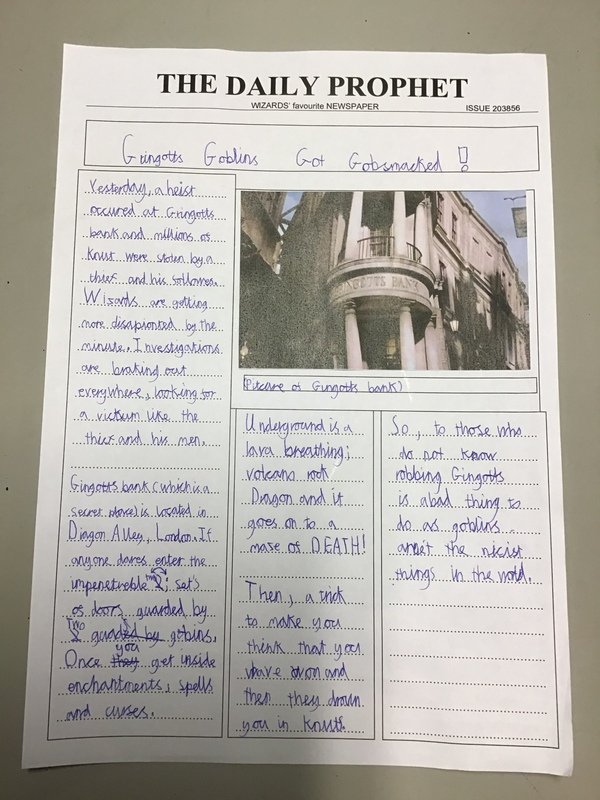 THE DAILY PROPHET
WIZARDS' favourite NEWSPAPER
ISSUE 203856
Gringotts Goblins Got Gobsmacked !
Yesterday, a heist
occured at Gringotts
bank and millions of
Knut were stolen by a
thief and his followe.
Wizards are getting
more disapionted by the
minute. Investigations
are braking out
everywhere, looking for
a victium like the
thief and his men.
Gingotts bank (which is a
secret place) is located in
Diagon Alley, London. If
anyone dares enter the
impenetreble two sets
of doors guarded by
two gobins.
Once you get inside
enchantments, spells
and curses.
GINGOTTS BANK
Pitcare of Gingotts bank)
Underground is a
lava breathing;
volcano rock
Dragon and it
goes on to a
maze of DEATH!
Then, a trick
to make you
think that you
have won and
then they drown
you in Knuts.
So, to those who
do not know
robbing Gingotts
is a bad thing to
do as goblins
aren't the nicist
things in the